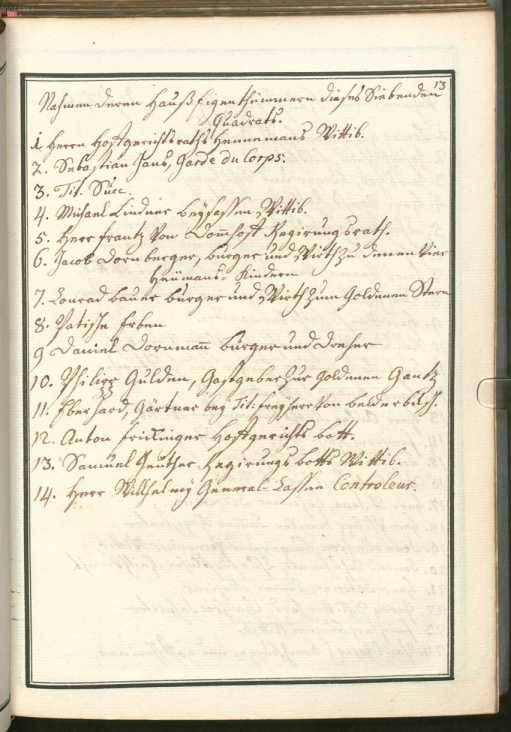 13
Nahmen deren Hauß Eigenthümmern dieses Siebenden
Quadrats.
1. Herrn Hoffgerichtsraths Hennemans Wittib.
2. Sebastian Jans, Garde du Corps.
3. Tit. Succ.
4. Michael Lindner beysassen Wittib.
5. Herr Frantz Von Domhoff Regirungsrath.
6. Jacob Dornberger, burger und Wirth zu denen Vier
Heümans-Kindern
7. Conrad bauer burger und Wirth zum Goldenen Stern
8. Erben
9 Daniel Dornmañ burger und Dreher
10. Philipp Gulden, Gastgeber zur Goldenen Gantz
11. Eberhard, Gärtner bey Tit: freyherr Von belderbusch.
12. Anton Hoffgerichts bott.
13. Samuel Regirungs botts Wittib.
14. Herr General-Cassen Controleur.